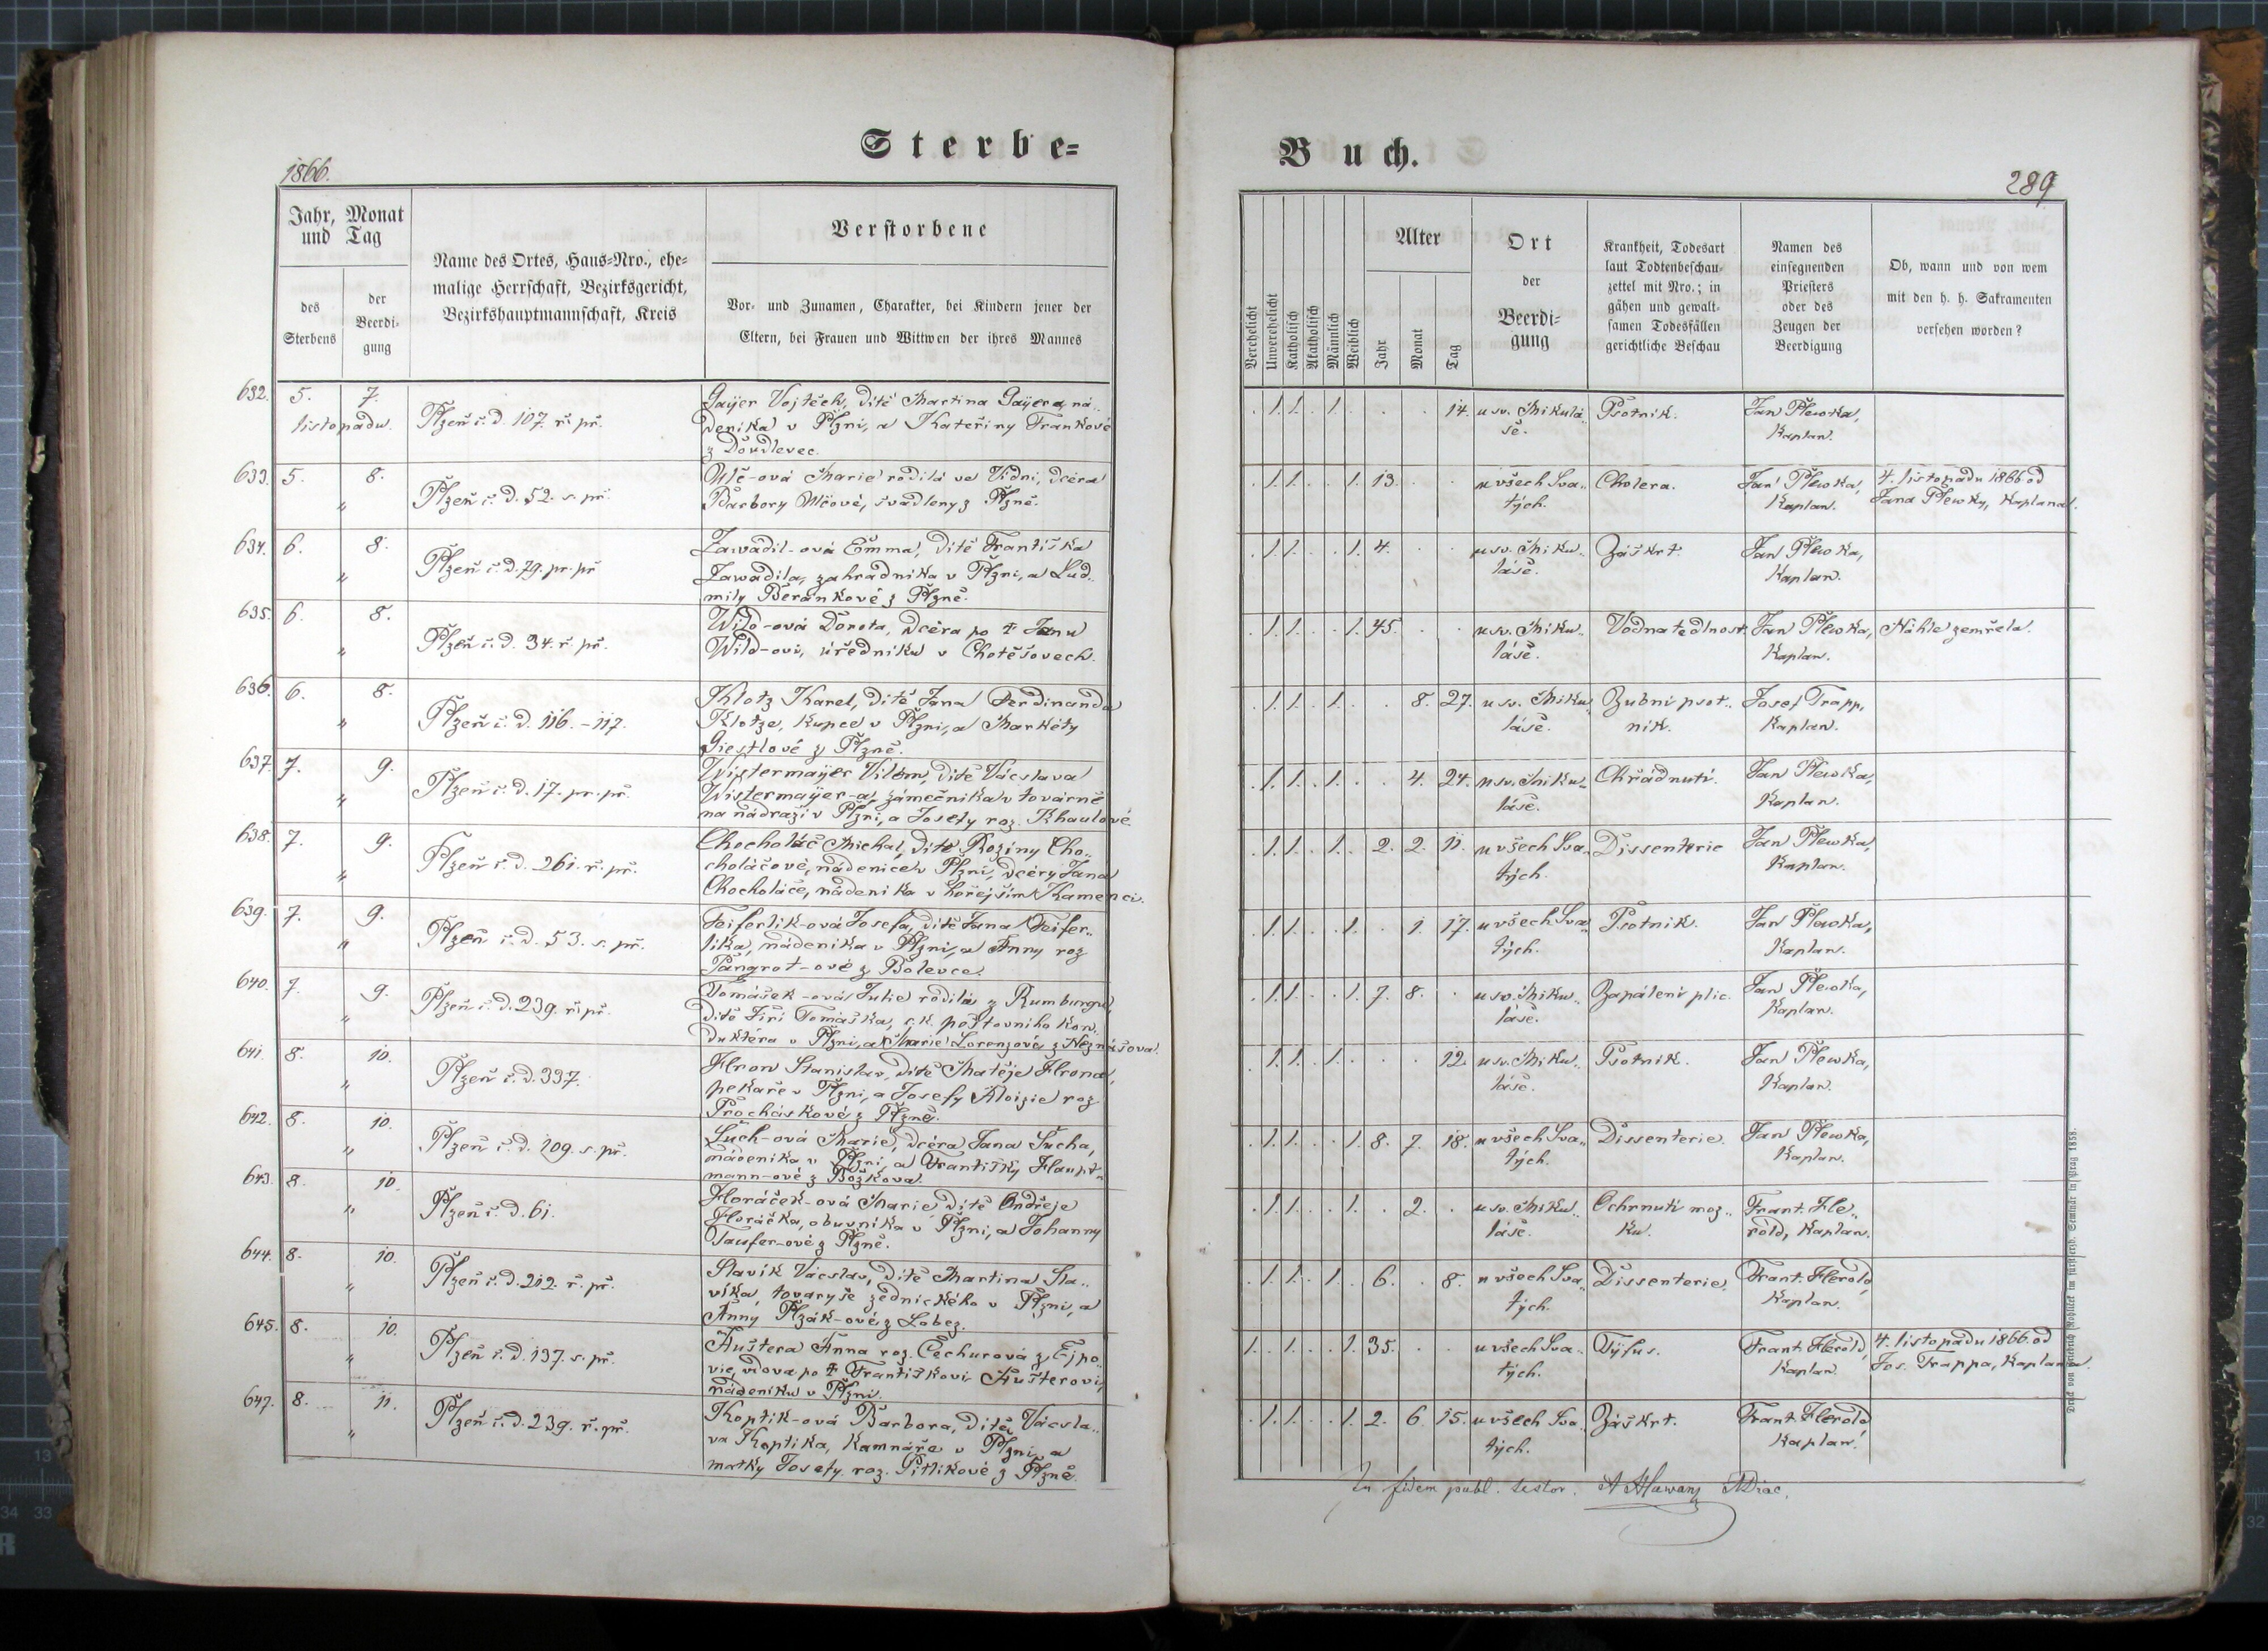 Sterbe=
1866.
Jahr, Monat
und Tag
des
Sterbens
der
Beerdi-
gung
Name des Ortes, Haus-Nro., ehe-
malige Herrschaft, Bezirksgericht,
Bezirkshauptmannschaft, Kreis
Verstorbene
Vor- und Zunamen, Charakter, bei Kindern jener der
Eltern, bei Frauen und Wittwen der ihres Mannes
632. 5. 7.
listopadu. Plzeň č. d. 107. ř. př.
Gayer Vojtěch, dítě Martina Gayera, ná„
deníka v Plzni, a Kateřiny Frankové
z Doudlevec.
633. 5. 8.
„ Plzeň č. d. 52. s. př.
Ulč-ová Marie rodilá ve Vídni, dcera
Barbory Ulčové, švadleny z Plzně.
634. 6. 8.
„ Plzeň č. d. 79. pr. př.
Zawadil-ová Emma, dítě Františka
Zawadila, zahradníka v Plzni, a Lud„
mily Beránkové z Plzně.
635. 6. 8.
„ Plzeň č. d. 34. ř. př.
Wild-ová Dorota, dcera po † Janu
Wild-ovi, úředníku v Chotěšovech.
636. 6. 8.
„ Plzeň č. d. 116.-117.
Klotz Karel, dítě Jana Ferdinanda
Klotze, kupce v Plzni, a Markéty
Giestlové z Plzně.
637. 7. 9.
„ Plzeň č. d. 17. pr. př.
Wistermayer Vilém, dítě Václava
Wistermayer-a, zámečníka v továrně
na nádraží v Plzni, a Josefy roz. Khaulové.
638. 7. 9.
„ Plzeň č. d. 261. ř. př.
Chocholáč Michal, dítě Roziny Cho„
choláčové, nádenice v Plzni, dcery Jana
Chocholáče, nádeníka v hořejším Kamenci.
639. 7. 9.
„ Plzeň č. d. 53. s. př.
Feiferlik-ová Josefa, dítě Jana Feifer„
lika, nádeníka v Plzni, a Anny roz
Pangrot-ové z Bolevce.
640. 7. 9.
„ Plzeň č. d. 239. ř. př.
Tomášek-ová Julie rodilá z Rumburgu,
dítě Jiří Tomáška, c. k. poštovního kon„
duktéra v Plzni, a Marie Lorenzové z Neznášova.
641. 8. 10.
„ Plzeň č. d. 337.
Hron Stanislav, dítě Matěje Hrona,
pekaře v Plzni, a Josefy Aloizie roz.
Procháskové z Plzně.
642. 8. 10.
„ Plzeň č. d. 109. s. př.
Such-ová Marie, dcera Jana Sucha,
nádeníka v Plzni, a Františky Haupt„
mann-ové z Božkova.
643. 8. 10.
„ Plzeň č. d. 61.
Horáček-ová Marie, dítě Ondřeje
Horáčka, obuvníka v Plzni, a Johanny
Taufer-ové z Plzně.
644. 8. 10.
„ Plzeň č. d. 212. ř. př.
Slavík Václav, dítě Martina Sla„
víka, tovaryše zednického v Plzni, a
Anny Plzák-ové z Lobez.
645. 8. 10.
„ Plzeň č. d. 137. s. př.
Auštera Anna roz. Čechurová z Ejpo„
vic, vdova po † Františkovi Aušterovi,
nádeníku v Plzni.
647. 8. 11.
„ Plzeň č. d. 239. ř. př.
Koptik-ová Barbora, dítě Václa„
va Koptika, kamnáře v Plzni, a
matky Josefy roz. Pitlikové z Plzně.
Buch.
289
Verehelicht
Unverehelicht
Katholisch
Akatholisch
Männlich
Weiblich
Alter
Jahr
Monat
Tag
Ort
der
Beerdi-
gung
Krankheit, Todesart
laut Todtenbeschau-
zettel mit Nro.; in
gähen und gewalt-
samen Todesfällen
gerichtliche Beschau
Namen des
einsegnenden
Priesters
oder des
Zeugen der
Beerdigung
Ob, wann und von wem
mit den h. h. Sakramenten
versehen worden?
. 1. 1. . 1. . . . 14. u sv. Mikulá„ Psotník. Jan Plewka,
še. Kaplan.
. 1. 1. . . 1. 13. . . u všech Sva„ Cholera. Jan Plewka, 4. listopadu 1866 od
tých. Kaplan. Jana Plewky, Kaplana.
. 1. 1. . . 1. 4. . . u sv. Miku„ Záškrt. Jan Plewka,
láše. Kaplan.
. 1. 1. . . 1. 45. . . u sv. Miku„ Vodnatedlnost. Jan Plewka, Náhle zemřela.
láše. Kaplan.
. 1. 1. . 1. . . 8. 27. u sv. Miku„ Zubní psot„ Josef Trapp,
láše. ník. Kaplan.
. 1. 1. . 1. . . 4. 24. u sv. Miku„ Chřádnutí. Jan Plewka,
láše. Kaplan.
. 1. 1. . 1. . 2. 2. 11. u všech Sva„ Dissenterie Jan Plewka,
tých. Kaplan.
. 1. 1. . . 1. . 1. 17. u všech Sva„ Psotník. Jan Plewka,
tých. Kaplan.
. 1. 1. . . 1. 7. 8. . u sv. Miku„ Zapálení plic. Jan Plewka,
láše. Kaplan.
. 1. 1. . 1. . . . 12. u sv. Miku„ Psotník. Jan Plewka,
láše. Kaplan.
. 1. 1. . . 1. 8. 7. 18. u všech Sva„ Dissenterie. Jan Plewka,
tých. Kaplan.
. 1. 1. . . 1. . 2. . u sv. Miku„ Ochrnutí moz„ Frant. He„
láše. ku. rold, Kaplan.
. 1. 1. . 1. . 6. . 8. u všech Sva„ Dissenterie. Frant. Herold,
tých. Kaplan.
1. . 1. . . 1. 35. . . u všech Sva„ Týfus. Frant. Herold, 4. listopadu 1866 od
tých. Kaplan. Jos. Trappa, Kaplana.
. 1. 1. . . 1. 2. 6. 15. u všech Sva„ Záškrt. Frant. Herold
tých. Kaplan.
In fidem publ. testor.
im fürsterzb. Seminär in Prag 1858.